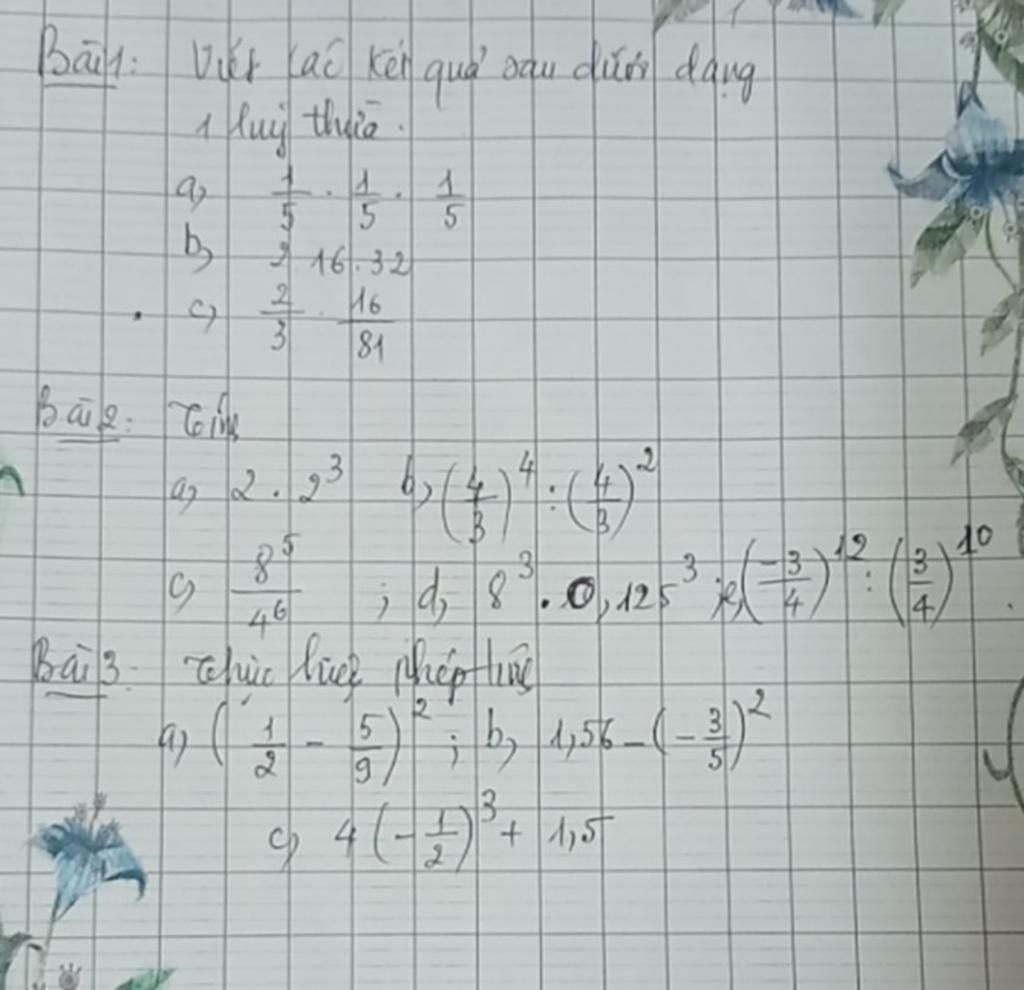 Bài 1: Viết các kết quả sau dưới dạng
1 luỹ thừa.
a, 1/5 . 1/5 . 1/5
b, 2 16.32
c, 2/3 . 16/81
Bài 2: Tính
a, 2 . 2³ b, (4/3)⁴ : (4/3)²
c, 8⁵/4⁶ ; d, 8³ . 0,125³ ; e, (-3/4)¹² : (3/4)¹⁰.
Bài 3: Thực hiện phép tính
a, (1/2 - 5/9)² ; b, 1,56 - (-3/5)²
c, 4 (-1/2)³ + 1,5